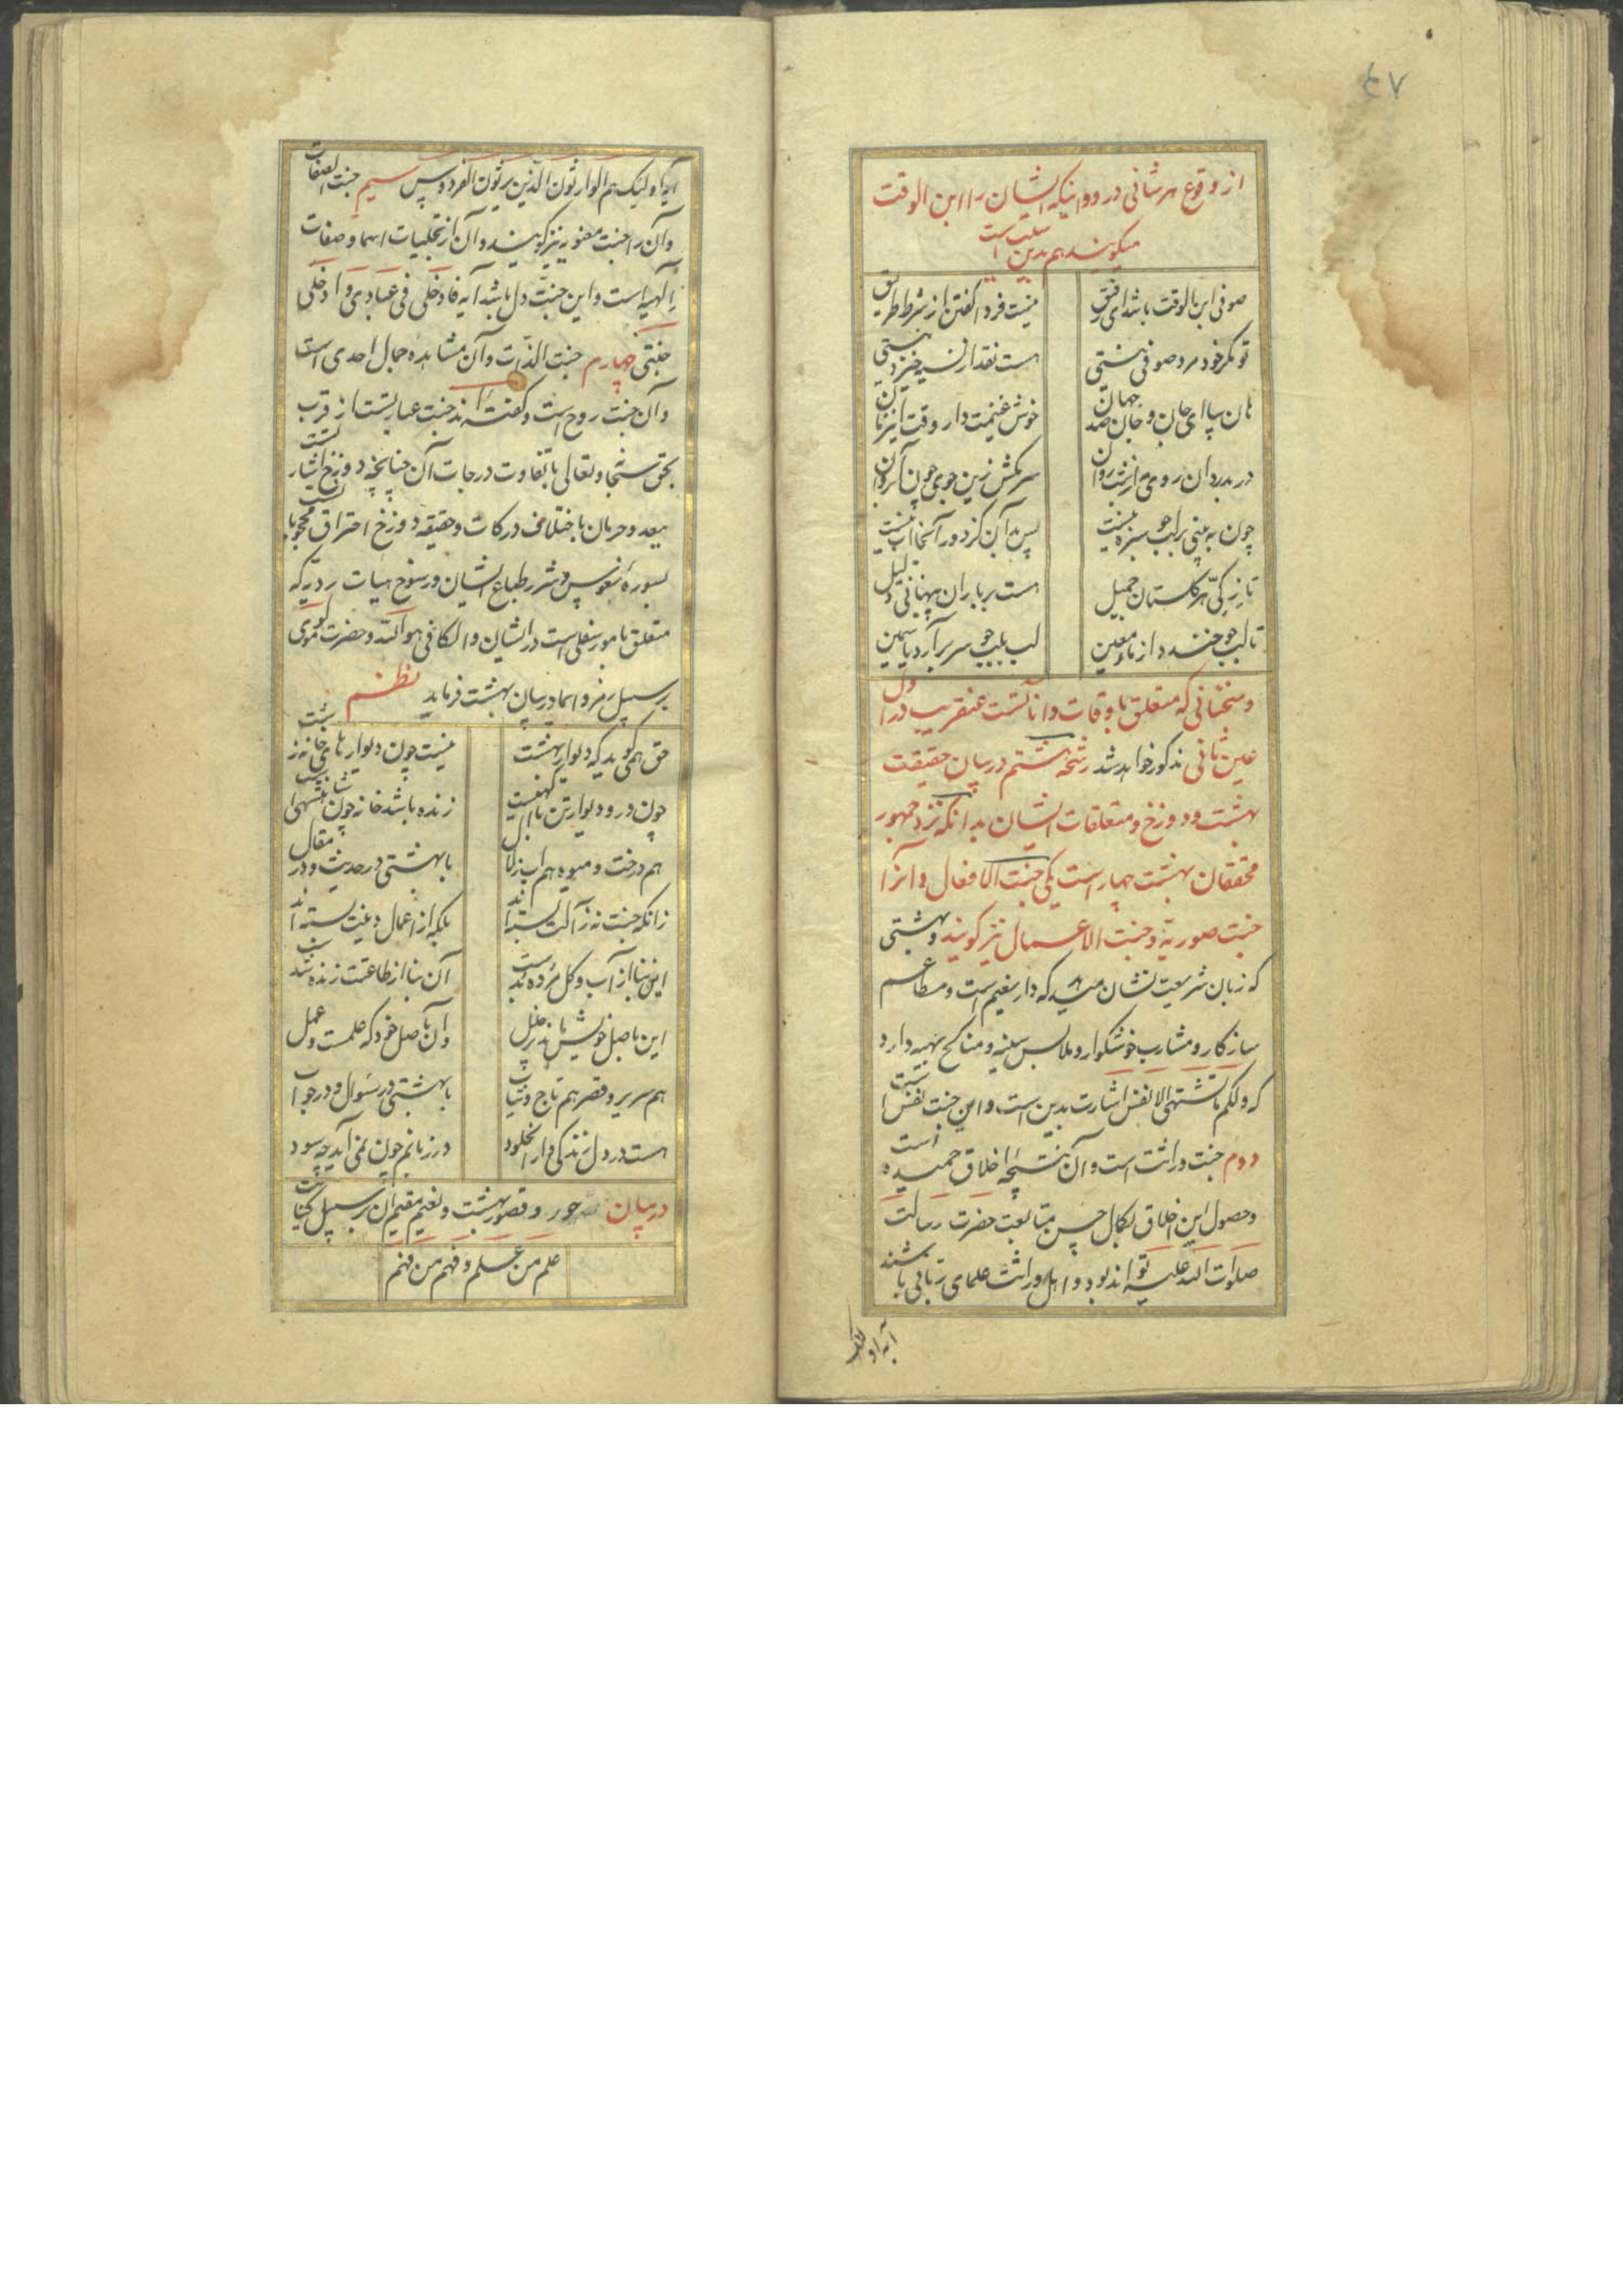 ٤٧
از وقوع هر شانی در دو اینکه ایشان را ابن الوقت
میگویند هم بدین سبب است
صوفی ابن الوقت باشد ای رفیق
نیست فردا گفتن از شرط طریق
تو مگر خود مرد صوفی نیستی
هست نقد از نسیه خیزد نیستی
هان بیا ای جان و جان صد جهان
خوش غنیمت دار وقت این زمان
در مدزد آن روی مه از شب روان
سر مکش زین جوی چون آب روان
چون به بینی بر لب جو سبزه نیست
پس بدان کز دور آنجا آب نیست
تازگی هر گلستان جمیل
هست بر باران پنهانی دلیل
تا لب جو خندد از ماء معین
لب بلب جو سر برآرد یاسمین
و سخنانی که متعلق باوقات و آنانست عنقریب در اول
عین ثانی مذکور خواهد شد رشحه هشتم در بیان حقیقت
بهشت و دوزخ و متعلقات ایشان بدانکه نزد جمهور
محققان بهشت چهار است یکی جنت الافعال و آنرا
جنت صوریه و جنت الاعمال نیز گویند و بهشتی
که زبان شریعت نشان میدهد که دار نعیم است و مطاعم
سازکار و مشارب خوشگوار و ملابس سنیه و مناکح بهیه دارد
که و لکم ما تشتهی الانفس اشارت بدین است و این جنت نفس است
دوم جنت وراثت است و آن نتیجه اخلاق حمیده است
و حصول این اخلاق بکمال حسن متابعت حضرت رسالت
صلوات الله علیه تواند بود و اهل وراثت علمای ربانی باشند
آیه اولئک
آیه اولیک هم الوارثون الذین یرثون الفردوس سیم جنت الصفات
و آن را جنت معنوی نیز گویند و آن از تجلیات اسما و صفات
الهیه است و این جنت دل باشد آیه فادخلی فی عبادی و ادخلی
جنتی چهارم جنت الذات و آن مشاهده جمال احدی است
و آن جنت روح است و گفته اند جنت عبارتست از قرب
بحق سبحانه و تعالی با تفاوت درجات آن چنانچه دوزخ اشارتست
ببعد و حرمان باختلاف درکات و حقیقه دوزخ احتراق محجوبانست
بسوره نفوس و شرر طباع ایشان و رسوخ هیات ردیه که
متعلق بامور سفلی است در ایشان و الکافی هو الله و حضرت مولوی
بر سبیل رمز و ایما در بیان بهشت فرماید نظم
حق همی گوید که دیوار بهشت
نیست چون دیوارهای خانه زشت
چون در و دیوار تن با آگهیست
زنده باشد خانه چون شاهنشهیست
هم درخت و میوه هم آب زلال
با بهشتی در حدیث و در مقال
زانکه جنت نه ز آلت بسته اند
بلکه از اعمال و نیت بسته اند
این بنا از آب و گل مرده بدست
آن بنا از طاعتت زنده شدست
این باصل خویش ماند پر خلل
و ان باصل خود که علمست و عمل
هم سریر و قصر هم تاج و ثیاب
با بهشتی در سؤال و در جواب
هست در دل زندگی دار الخلود
در زبانم چون نمی آید چه سود
در بیان حور و قصور بهشت و نعیم مقیم آن بر سبیل کنایت
علم من علم و فهم من فهم